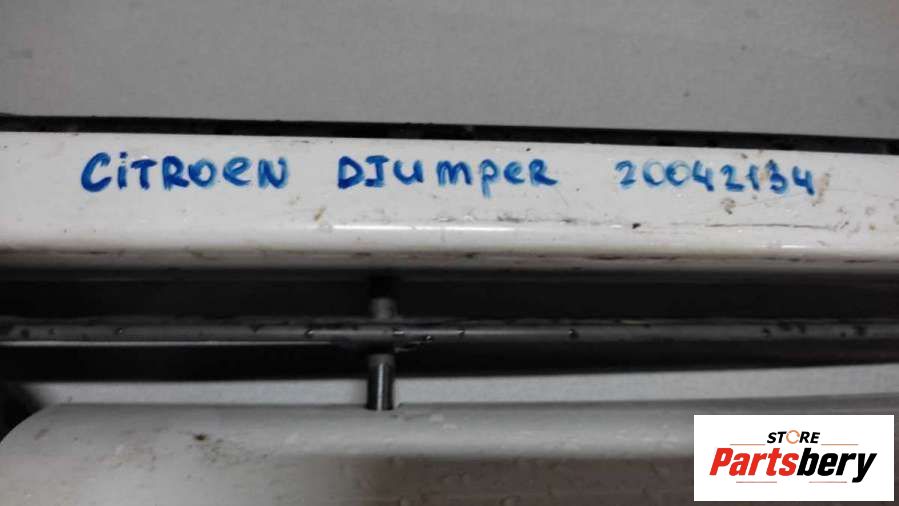 CiTROEN DJUMPER 20042134
STORE
Partsbery